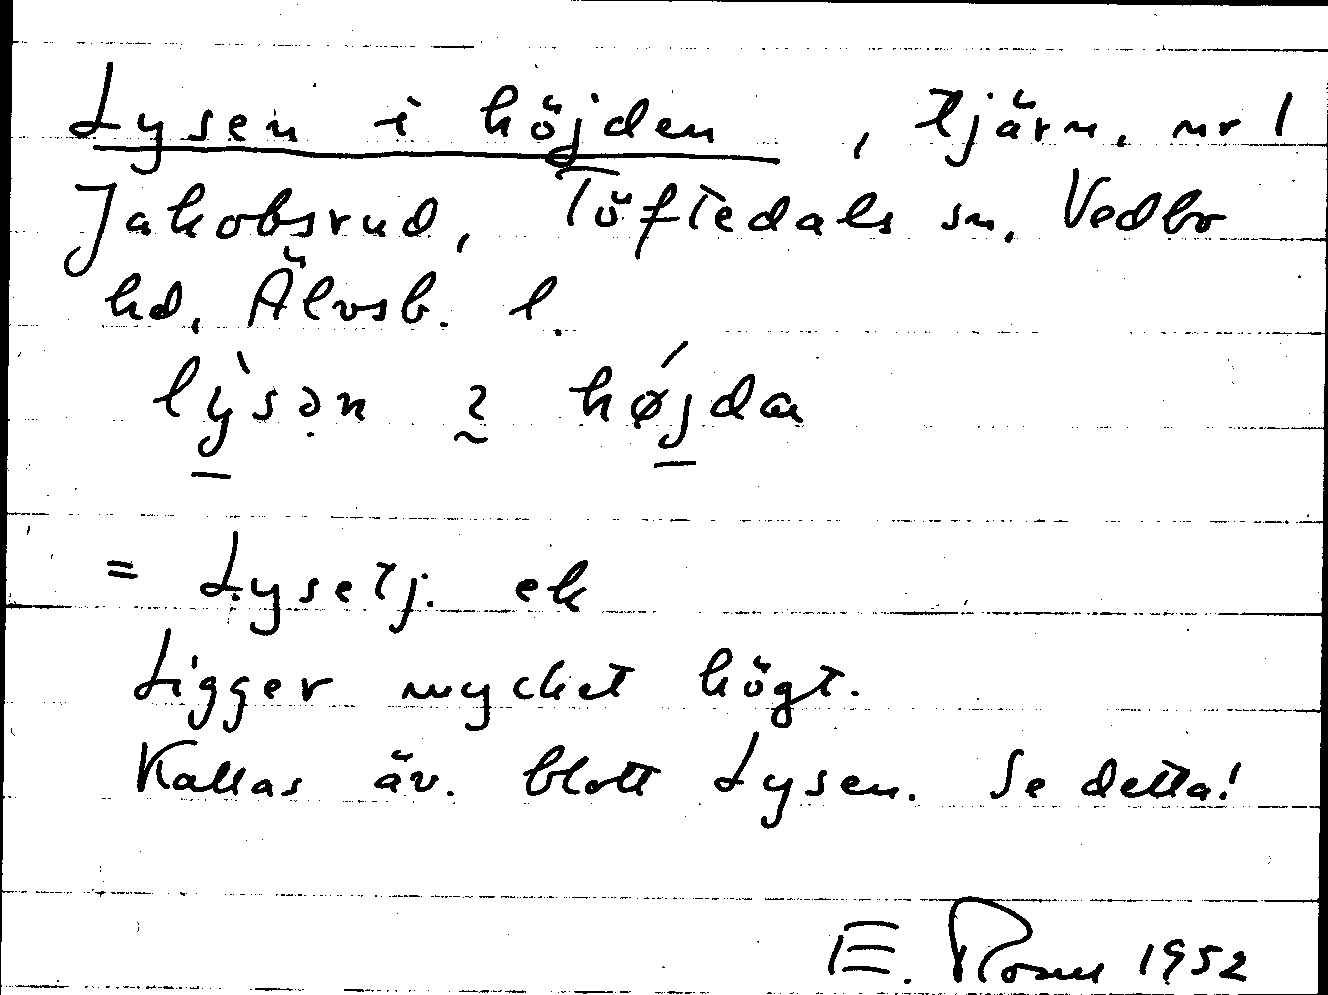 Lysen i höjden, tjärn, nr 1
Jakobsrud, Töftedals sn, Vedbo
hd, Älvsb. l.
= Lysetj. ek
Ligger mycket högt.
Kallas äv. blott Lysen. Se detta!
E. 1952